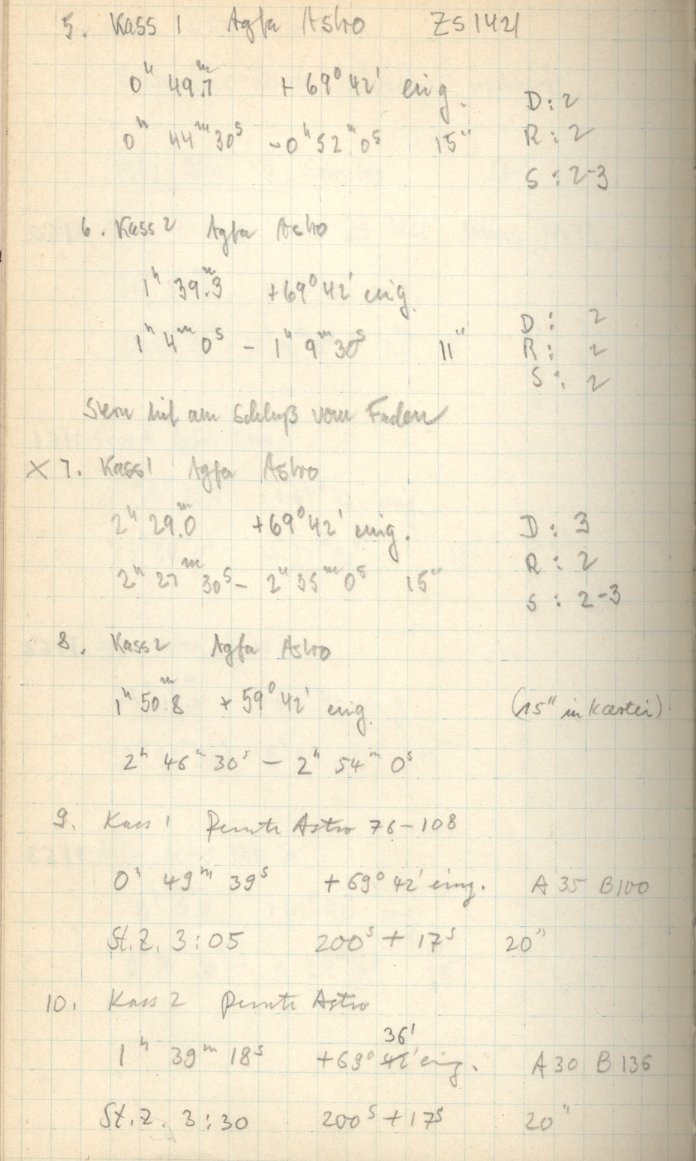 5. Kass 1 Agfa Astro ZS 1421
0ʰ 49ᵐ.7 + 69° 42' eing. D: 2
0ʰ 44ᵐ 30ˢ - 0ʰ 52ᵐ 0ˢ 15" R: 2
S: 2-3
6. Kass 2 Agfa Astro
1ʰ 39ᵐ.3 +69° 42' eing.
D: 2
1ʰ 4ᵐ 0ˢ - 1ʰ 9ᵐ 30ˢ 11" R: 2
S: 2
Stern lief am Schluß vom Faden
X 7. Kass 1 Agfa Astro
2ʰ 29ᵐ.0 +69° 42' eing. D: 3
R: 2
2ʰ 27ᵐ 30ˢ - 2ʰ 35ᵐ 0ˢ 15" S: 2-3
8. Kass 2 Agfa Astro
1ʰ 50ᵐ.8 + 59° 42' eing. (15" in Kartei)
2ʰ 46ᵐ 30ˢ - 2ʰ 54ᵐ 0ˢ
9. Kass 1 Perutz Astro 76-108
0ʰ 49ᵐ 39ˢ + 69° 42' eing. A 35 B 100
St.Z. 3:05 200ˢ + 17ˢ 20"
10. Kass 2 Perutz Astro
36'
1ʰ 39ᵐ 18ˢ +69° 42' eing. A 30 B 136
St.Z. 3:30 200ˢ + 17ˢ 20"